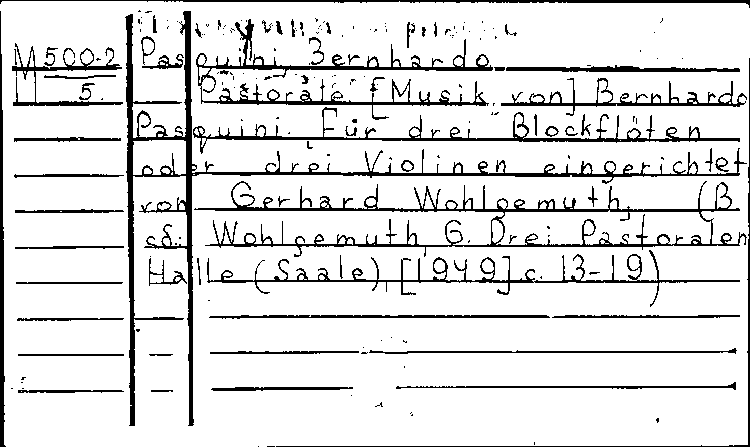 M 500-2
5.
Pasquini, Bernhardo
Pastorale. [Musik von] Bernhardo
Pasquini. Für drei Blockflöten
oder drei Violinen eingerichtet
von Gerhard Wohlgemuth. (В
сб.: Wohlgemuth, G. Drei Pastoralen
Halle (Saale), [1949] с. 13-19)